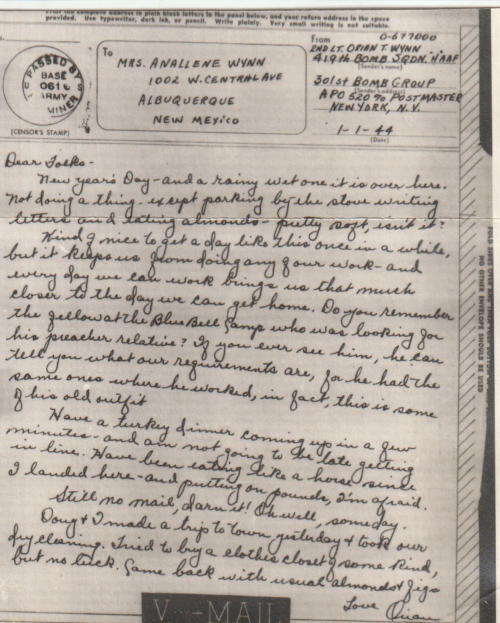 Print the complete address in plain block letters in the panel below, and your return address in the space
provided. Use typewriter, dark ink, or pencil. Write plainly. Very small writing is not suitable.
PASSED BY
BASE
ARMY
EXAMINER
(CENSOR'S STAMP)
To
MRS. ANALLENE WYNN
1002 W. CENTRAL AVE
ALBUQUERQUE
NEW MEXICO
From
O-677000
2ND LT. ORIAN T. WYNN
(Sender's name)
419th BOMB SQDN. HAAF
301st BOMB GROUP
(Sender's address)
APO 520 % POSTMASTER
NEW YORK, N.Y.
1-1-44
(Date)
Dear Folks-
New year's Day - and a rainy wet one it is over here.
Not doing a thing - except parking by the stove writing
letters and eating almonds - pretty soft, isn't it?
Kind of nice to get a day like this once in a while,
but it keeps us from doing any of our work - and
every day we can work brings us that much
closer to the day we can get home. Do you remember
the fellow at the Blue Bell Camps who was looking for
his preacher relative? If you ever see him, he can
tell you what our requirements are, for he had the
same ones where he worked, in fact, this is some
of his old outfit
Have a turkey dinner coming up in a few
minutes - and am not going to be late getting
in line. Have been eating like a horse since
I landed here - and putting on pounds, I'm afraid.
Still no mail, darn it! Oh well, someday.
Doug & I made a trip to town yesterday & took our
dry cleaning. Tried to buy a clothes closet of some kind,
but no luck. Came back with usual almonds & figs
Love Orian
V···-MAIL
NO OTHER ENVELOPE SHOULD BE USED